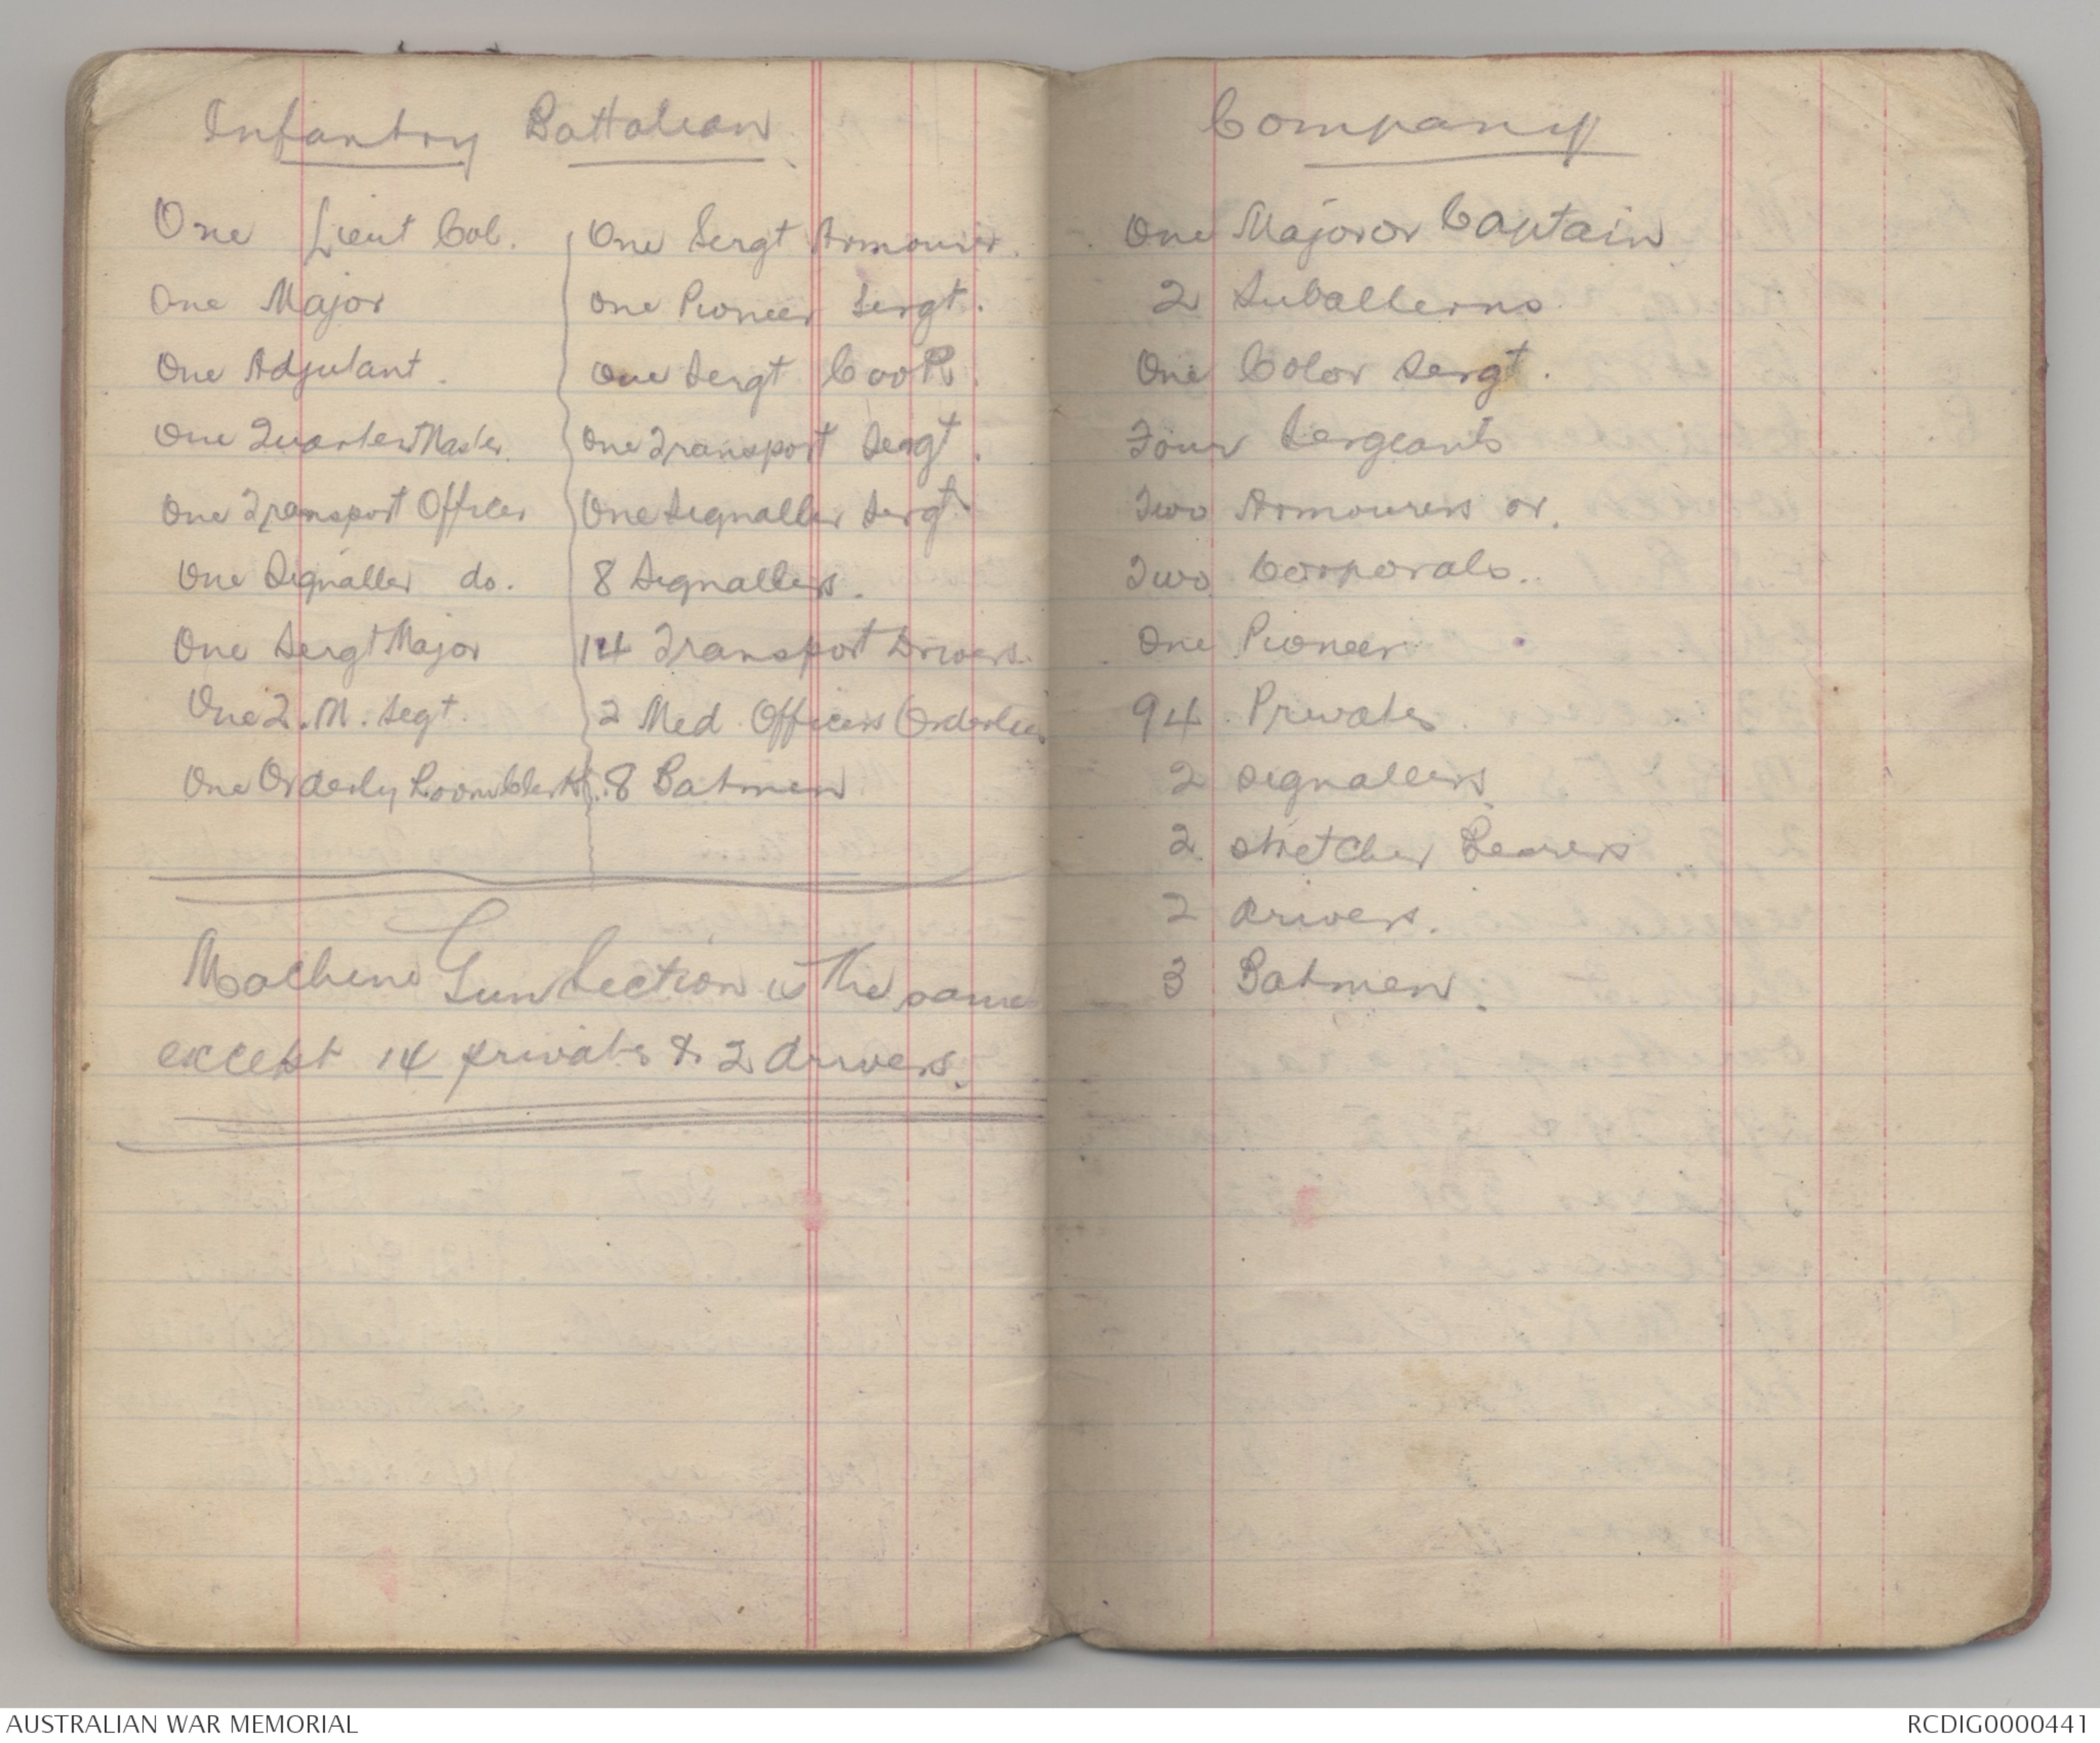 Infantry Battalion
One Lieut Col.
One Major
One Adjutant.
One QuarterMaster.
One Transport Officer
One Signaller do.
One Sergt Major
One Q.M. Segt.
One Orderly Room Clerk
One Sergt Armourer.
One Pioneer Sergt.
One Sergt Cook.
One Transport Sergt.
One Signaller Sergt.
8 Signallers.
14 Transport Drivers.
2 Med Officers Orderlies
8 Batmen
Machine Gun Section is the same
except 14 privates & 2 drivers.
Company
One Major or Captain
2 Suballerns
One Color Sergt.
Four Sergeants
Two Armourers or.
Two Corporals.
One Pioneer
94 Privates
2 signallers
2 stretcher Bearers
2 drivers.
3 Batmen.
AUSTRALIAN WAR MEMORIAL
RCDIG0000441